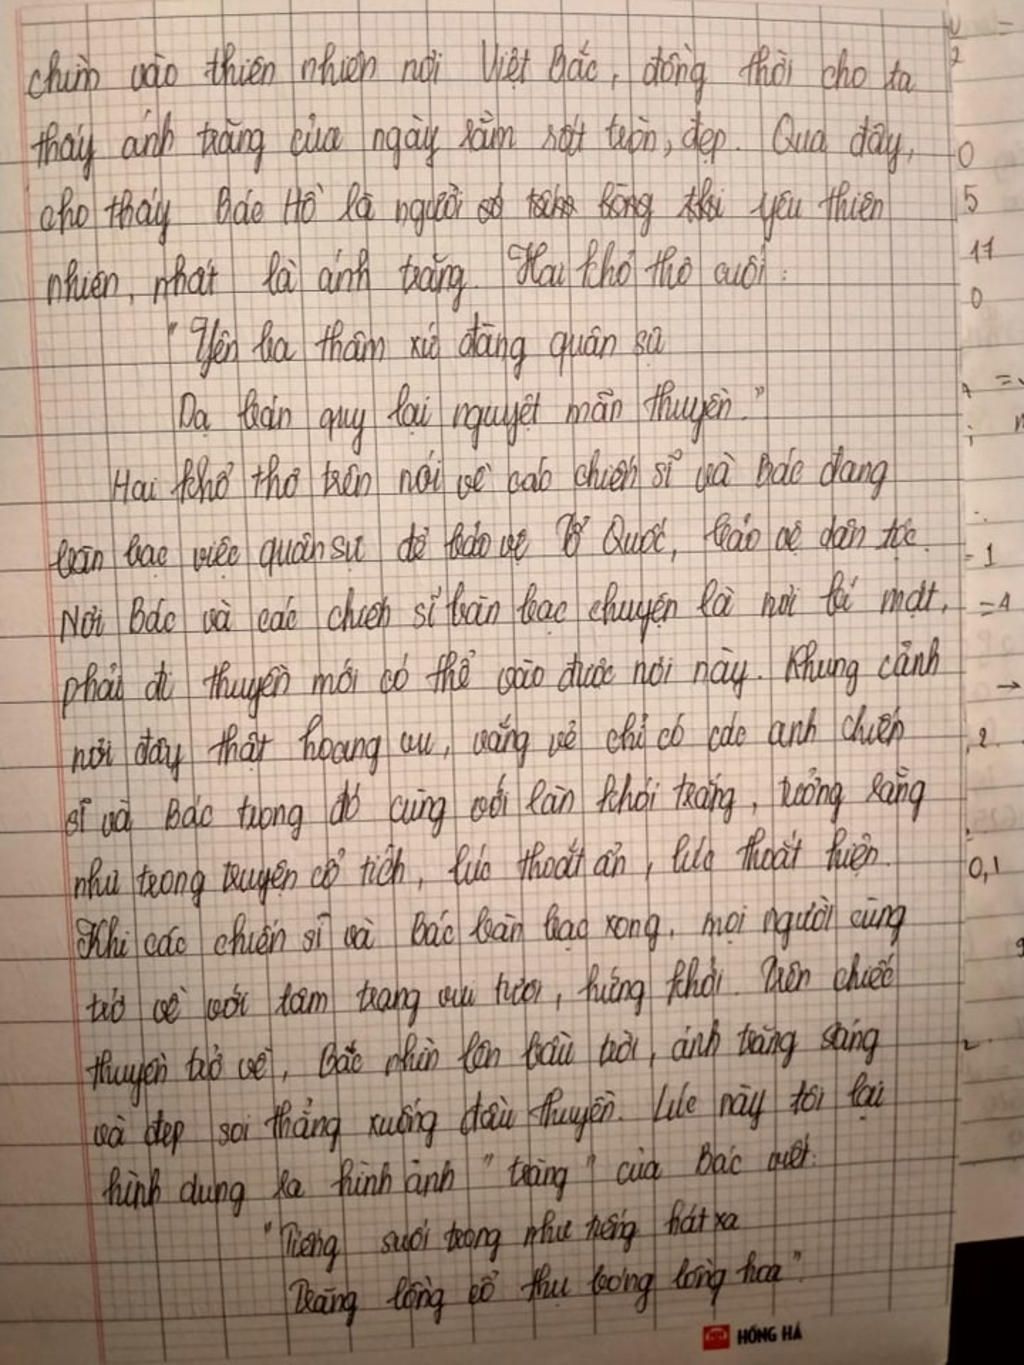 chìm vào thiên nhiên nơi Việt Bắc, đồng thời cho ta
thấy ánh trăng của ngày rằm rất tròn, đẹp. Qua đây,
cho thấy Bác Hồ là người có lòng yêu thiên
nhiên, nhất là ánh trăng. Hai khổ thơ cuối:
"Yên ba thâm xứ đàng quân sự
Dạ bán quy lại nguyệt mãn thuyền."
Hai khổ thơ trên nói về các chiến sĩ và Bác đang
bàn bạc việc quân sự để bảo vệ Tổ Quốc, bảo vệ dân tộc.
Nơi Bác và các chiến sĩ bàn bạc chuyện là nơi bí mật,
phải đi thuyền mới có thể vào được nơi này. Khung cảnh
nơi đây thật hoang vu, vắng vẻ chỉ có các anh chiến
sĩ và Bác trong đó cùng với làn khói trắng, tưởng rằng
như trong truyện cổ tích, lúc thoắt ẩn, lúc thoắt hiện.
Khi các chiến sĩ và Bác bàn bạc xong, mọi người cùng
trở về với tâm trạng vui tươi, hứng khởi. Trên chiếc
thuyền trở về, Bác nhìn lên bầu trời, ánh trăng sáng
và đẹp soi thẳng xuống đầu thuyền. Lúc này tôi lại
hình dung ra hình ảnh "trăng" của Bác viết:
"Tiếng suối trong như tiếng hát xa
Trăng lồng cổ thụ bóng lồng hoa"
HỒNG HÀ